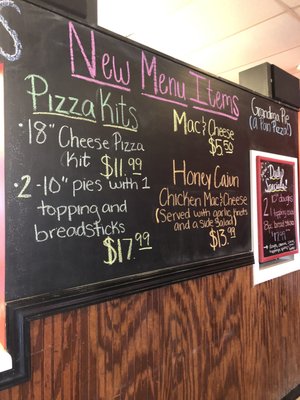 s
New Menu Items
Pizza Kits
·18" Cheese Pizza
Kit $11.99
·2 -10" pies with 1
topping and
breadsticks
$17.99
Mac & Cheese
$5.50
Honey Cajun
Chicken Mac & Cheese
(Served with garlic knots
and a side salad)
$13.99
Grandma Pie
(a Pan Pizza)
Daily
Specials!
2 10"